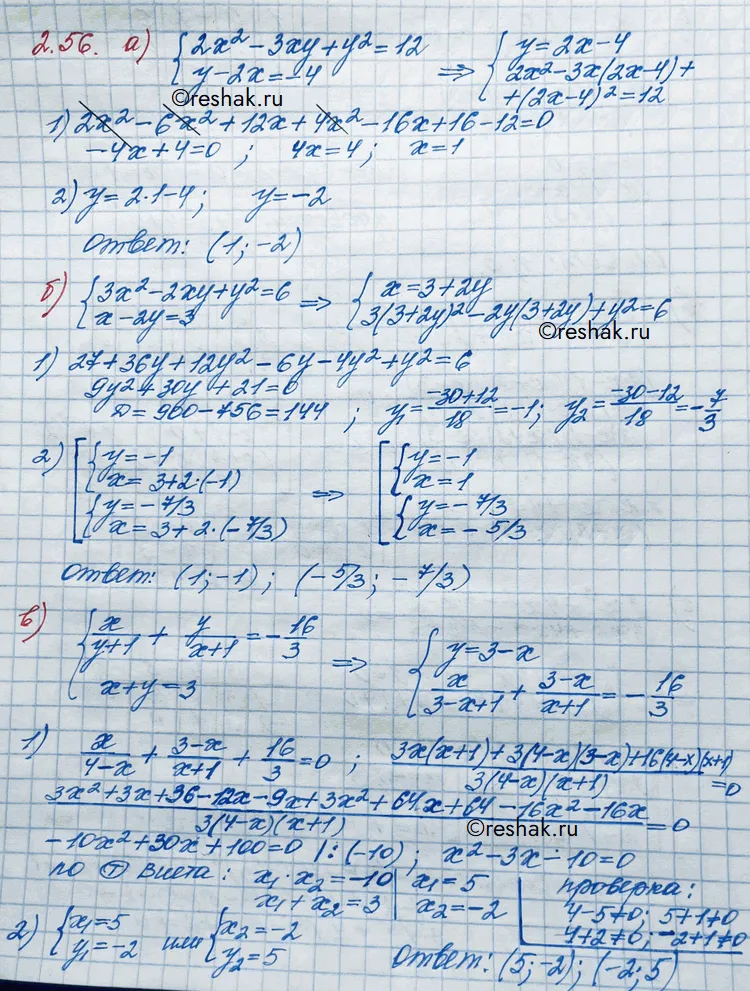 2.56. а) { 2x² − 3xy + y² = 12 ⇒ { y = 2x − 4
y − 2x = −4 2x² − 3x(2x − 4) +
+ (2x − 4)² = 12
©reshak.ru
1) 2x² − 6x² + 12x + 4x² − 16x + 16 − 12 = 0
−4x + 4 = 0 ; 4x = 4 ; x = 1
2) y = 2·1 − 4 ; y = −2
Ответ: (1; −2)
б) { 3x² − 2xy + y² = 6 ⇒ { x = 3 + 2y
x − 2y = 3 3(3 + 2y)² − 2y(3 + 2y) + y² = 6
©reshak.ru
1) 27 + 36y + 12y² − 6y − 4y² + y² = 6
9y² + 30y + 21 = 0
D = 900 − 756 = 144 ; y₁ = (−30+12)/18 = −1 ; y₂ = (−30−12)/18 = −7/3
2) [ { y = −1 ⇒ [ { y = −1
x = 3 + 2·(−1) x = 1
{ y = −7/3 { y = −7/3
x = 3 + 2·(−7/3) x = −5/3
Ответ: (1; −1) ; (−5/3 ; −7/3)
в) { x/(y+1) + y/(x+1) = −16/3 ⇒ { y = 3 − x
x + y = 3 x/(3−x+1) + (3−x)/(x+1) = −16/3
1) x/(4−x) + (3−x)/(x+1) + 16/3 = 0 ; (3x(x+1) + 3(4−x)(3−x) + 16(4−x)(x+1))/(3(4−x)(x+1)) = 0
(3x² + 3x + 36 − 12x − 9x + 3x² + 64x + 64 − 16x² − 16x)/(3(4−x)(x+1)) = 0
©reshak.ru
−10x² + 30x + 100 = 0 |:(−10) ; x² − 3x − 10 = 0
по Ⓣ Виета : x₁·x₂ = −10 | x₁ = 5 проверка:
x₁ + x₂ = 3 | x₂ = −2 4−5≠0; 5+1≠0
4+2≠0; −2+1≠0
2) { x₁ = 5 или { x₂ = −2
y₁ = −2 y₂ = 5 Ответ: (5; −2); (−2; 5)